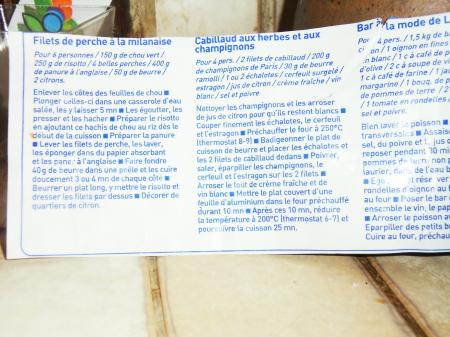 Filets de perche à la milanaise
Pour 6 personnes / 150 g de chou vert /
250 g de risotto / 4 belles perches / 400 g
de panure à l'anglaise / 50 g de beurre /
2 citrons.
Enlever les côtes des feuilles de chou ■
Plonger celles-ci dans une casserole d'eau
salée, les y laisser 5 mn ■ Les égoutter, les
presser et les hacher ■ Préparer le risotto
en ajoutant ce hachis de chou au riz dès le
début de la cuisson ■ Préparer la panure
■ Lever les filets de perche, les laver,
les éponger dans du papier absorbant
et les paner à l'anglaise ■ Faire fondre
40g de beurre dans une poêle et les cuire
doucement 3 ou 4 mn de chaque côté ■
Beurrer un plat long, y mettre le risotto et
dresser les filets par dessus ■ Décorer de
quartiers de citron.
Cabillaud aux herbes et aux
champignons
Pour 4 pers. / 2 filets de cabillaud / 200 g
de champignons de Paris / 30 g de beurre
ramolli / 1 ou 2 échalotes / cerfeuil surgelé /
estragon / jus de citron / crème fraîche / vin
blanc / sel et poivre
Nettoyer les champignons et les arroser
de jus de citron pour qu'ils restent blancs ■
Couper finement les échalotes, le cerfeuil
et l'estragon ■ Préchauffer le four à 250°C
(thermostat 8-9) ■ Badigeonner le plat de
cuisson de beurre et placer les échalotes et
les 2 filets de cabillaud dedans ■ Poivrer,
saler, éparpiller les champignons, le
cerfeuil et l'estragon sur les 2 filets ■
Arroser le tout de crème fraîche et de
vin blanc ■ Mettre le plat couvert d'une
feuille d'aluminium dans le four préchauffé
durant 10 mn ■ Après ces 10 mn, réduire
la température à 200°C (thermostat 6-7) et
poursuivre la cuisson 25 mn.
Bar la mode de L
4 pers. / 1,5 kg de ba
/ 1 oignon en fines
blanc / 1 c à café de p
d'olive / 2 c à soupe de vi
1 c à café de farine / 1 ja
margarine / 1 bouq. de p
de pommes de terre / 2
/ 1 tomate en rondelles
sel et poivre.
Bien laver le poisson ■
transversales ■ Assais
sel, du poivre et 1 jus d
reposer pendant 10 mi
pommes de terre, non
laurier, dans de l'eau b
et réserv
rondelles d'oignon au f
au four ■ Poser le bar
ensemble le vin, le pa
■ Arroser le poisson av
Eparpiller des petits b
Cuire au four, préchau